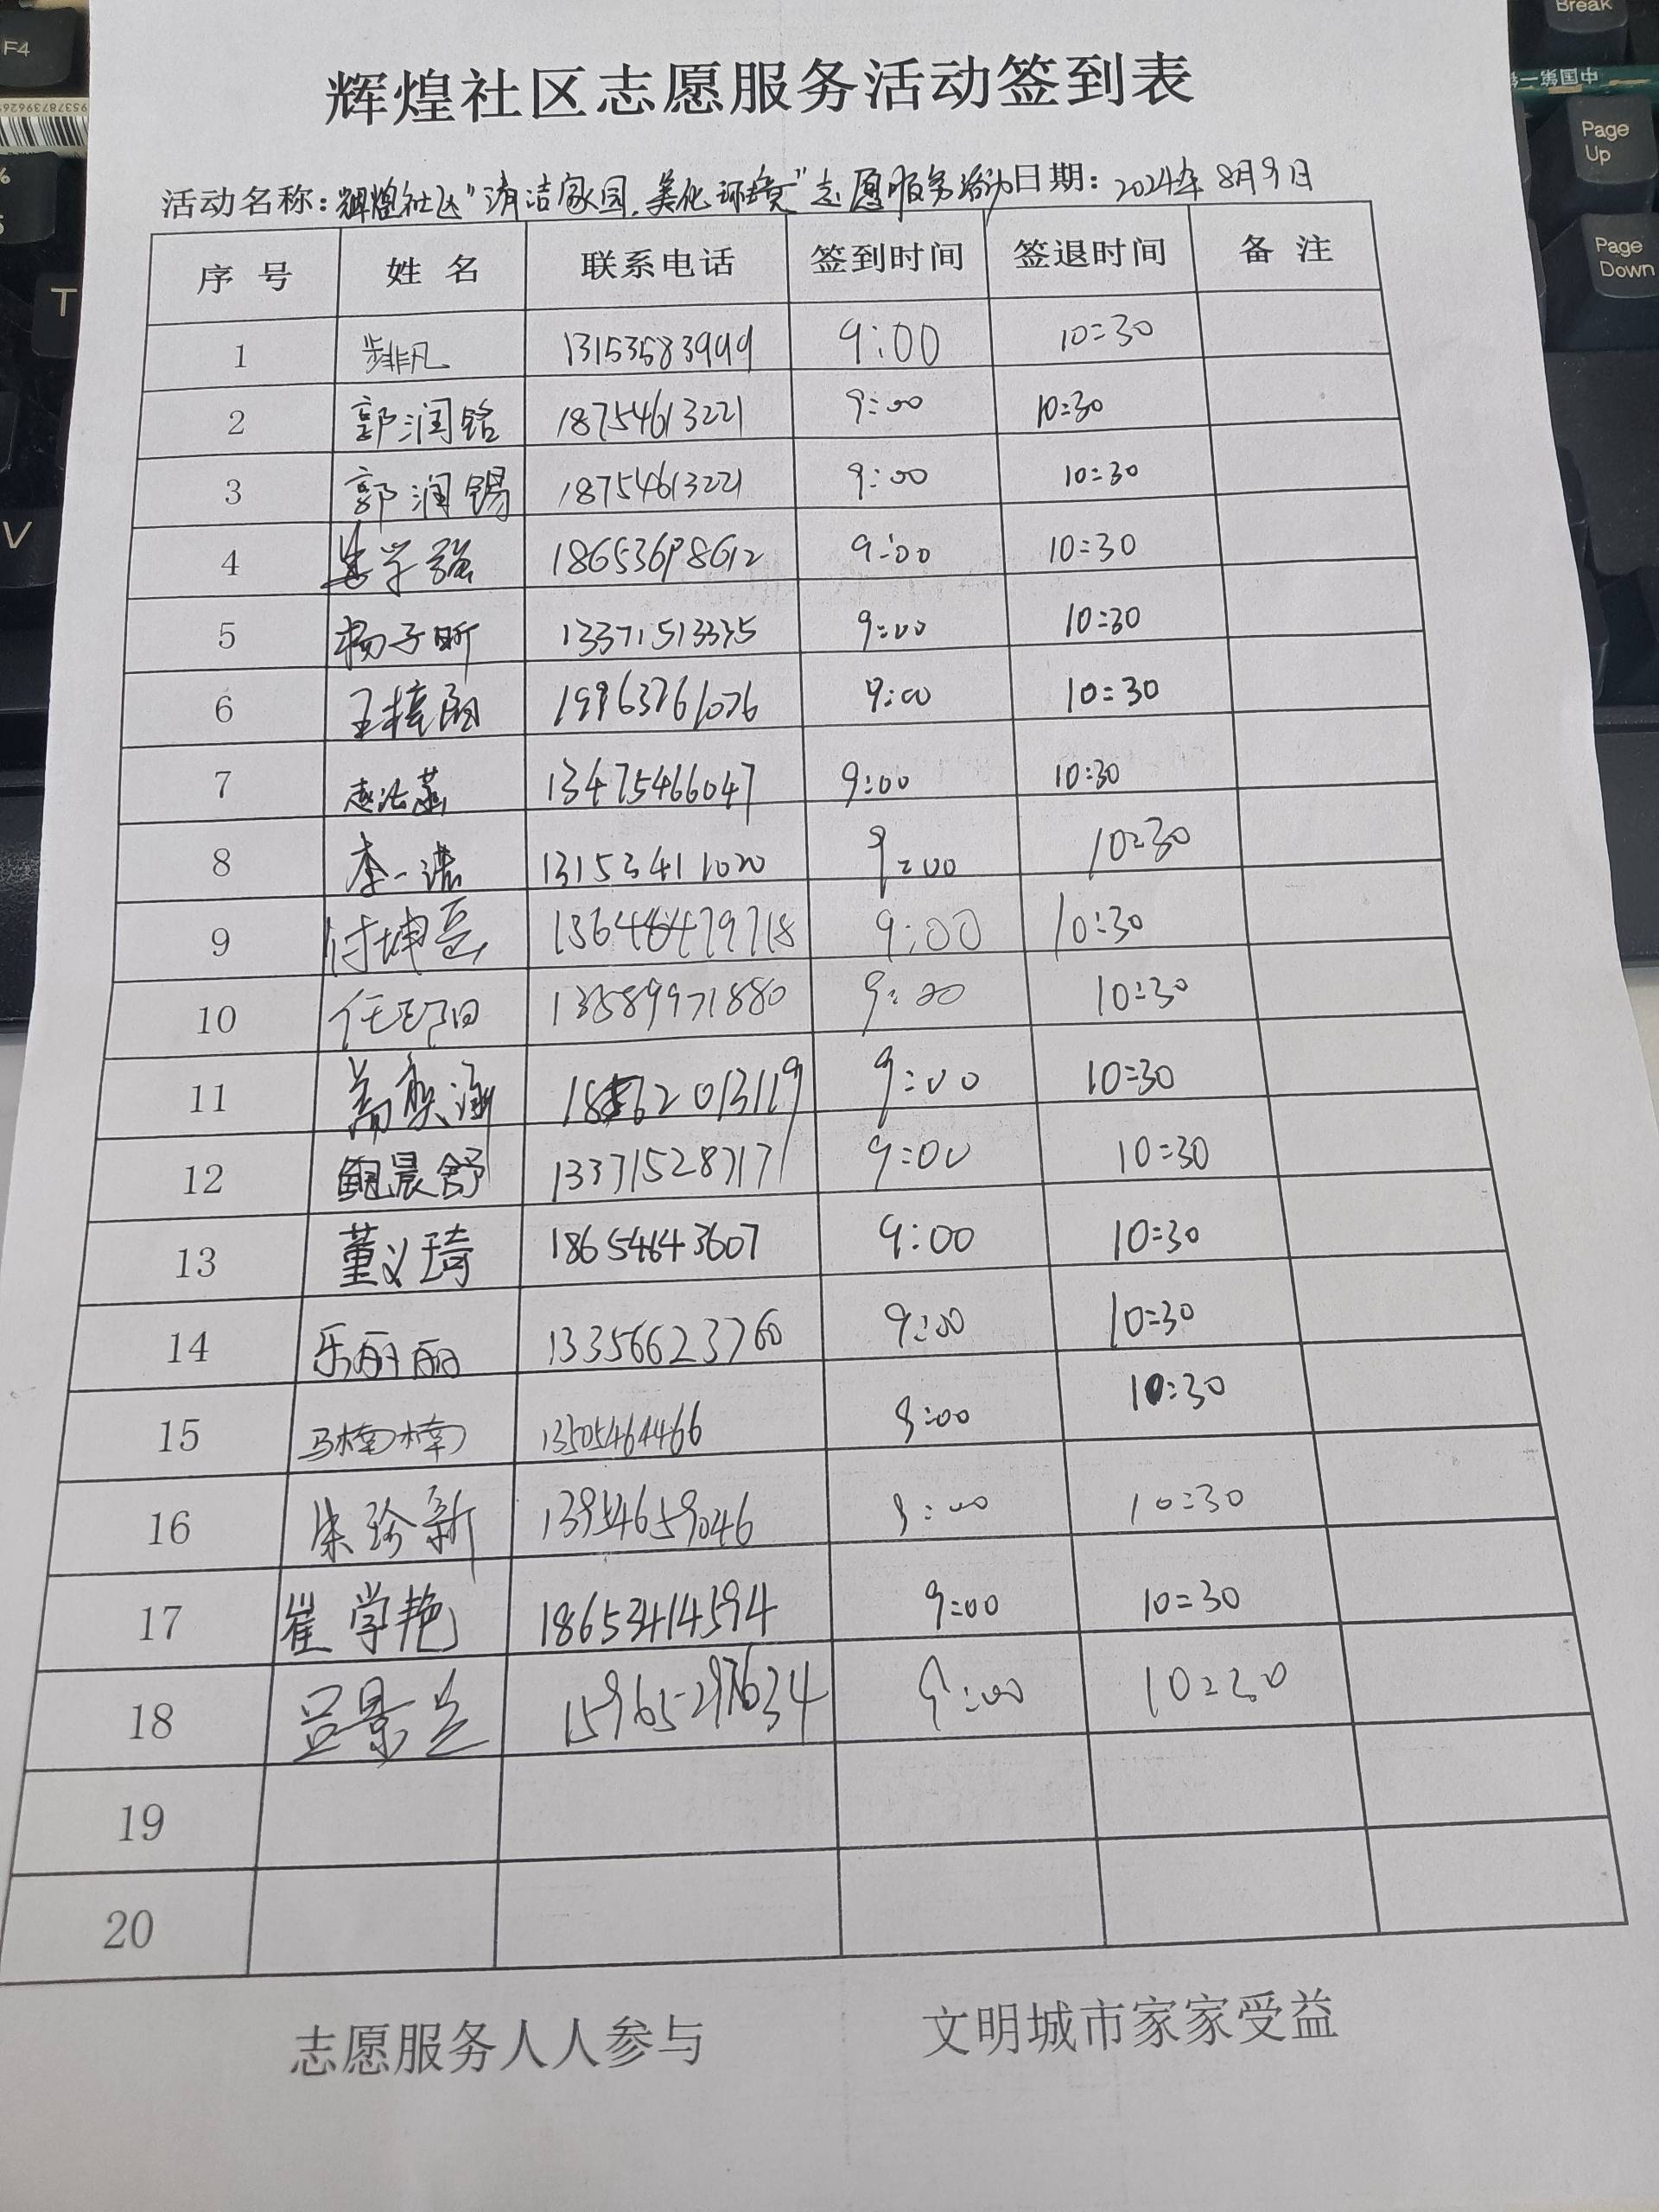 F4
Break
Page
Up
Page
Down
T
V
中国第一
辉煌社区志愿服务活动签到表
活动名称：辉煌社区"清洁家园，美化环境"志愿服务活动 日期：2024年8月9日
序 号 姓 名 联系电话 签到时间 签退时间 备 注
1 步非凡 13153583999 9:00 10:30
2 郭润铭 18754613221 9:00 10:30
3 郭润锡 18754613221 9:00 10:30
4 学强 9:00 10:30
5 杨子昕 13371513335 9:00 10:30
6 王 9:00 10:30
7 赵 13475466047 9:00 10:30
8 李一诺 13153411020 9:00 10:30
9 付坤 9:00 10:30
10 任 13589971880 9:00 10:30
11 盖奕涵 9:00 10:30
12 鲍晨舒 13371528717 9:00 10:30
13 董义琦 18654643607 9:00 10:30
14 乐丽丽 13356623760 9:00 10:30
15 马楠楠 13505464466 9:00 10:30
16 朱珍新 13954659046 9:00 10:30
17 崔学艳 18653414594 9:00 10:30
18 吕景兰 9:00 10:30
19
20
志愿服务人人参与 文明城市家家受益